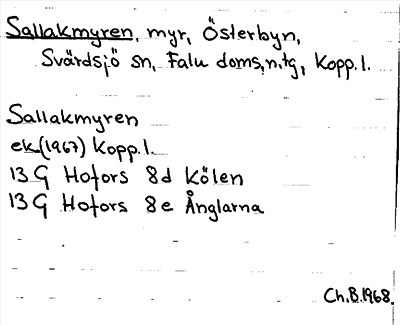 Sallakmyren, myr, Österbyn,
Svärdsjö sn, Falu doms.n.tg, Kopp.l.
Sallakmyren
ek.(1967) Kopp.l.
13 G Hofors 8d Kölen
13 G Hofors 8e Änglarna
Ch.B.1968.